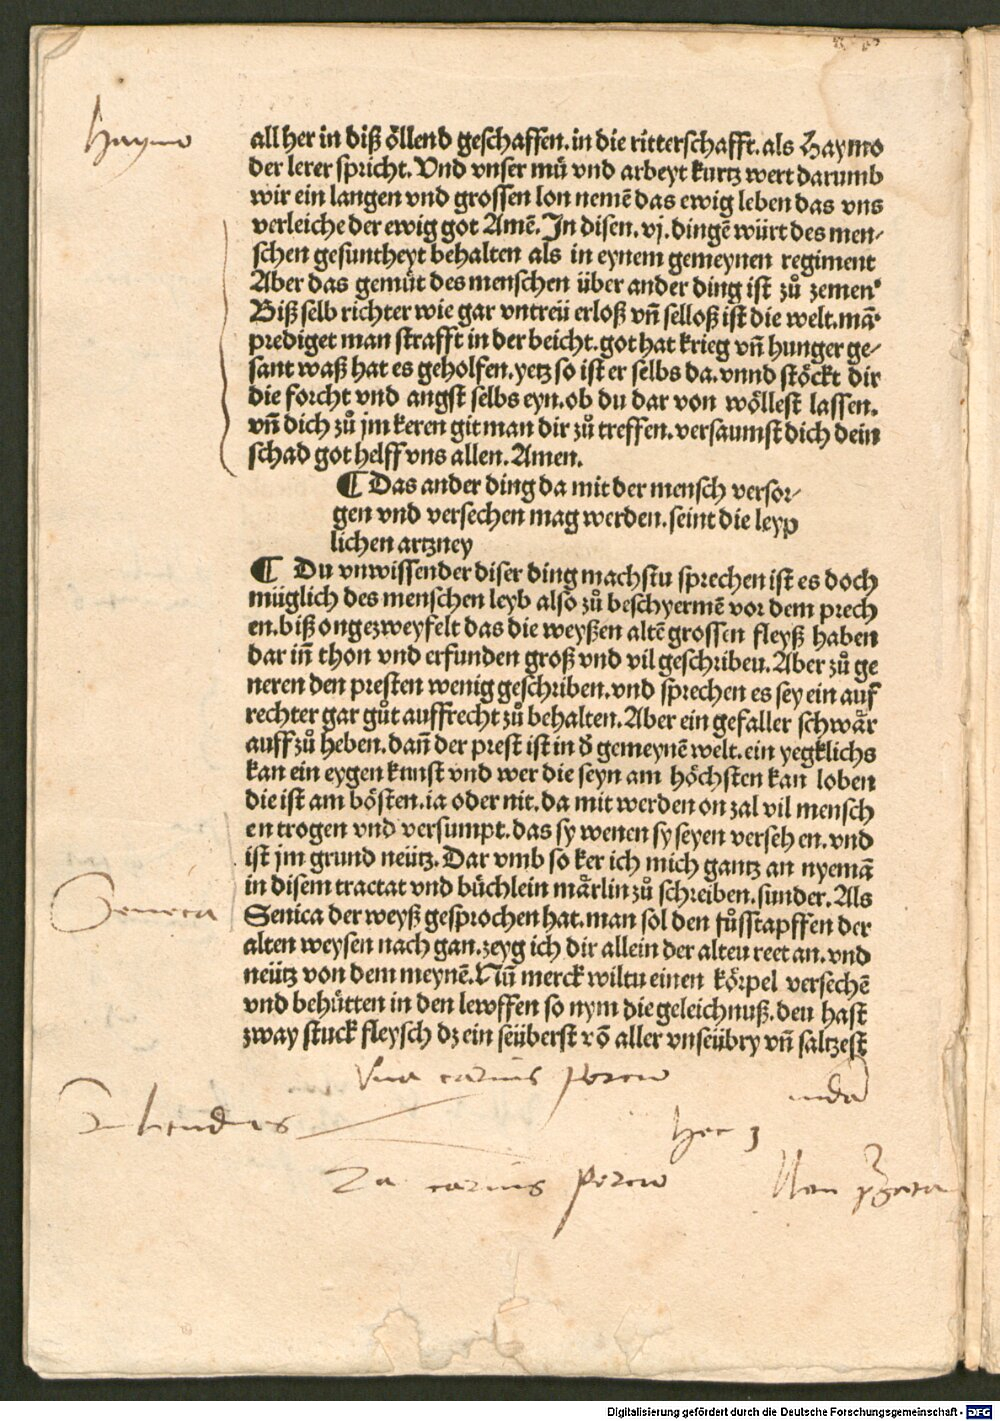 haymo
all her in diß öllend geschaffen. in die ritterschafft. als Haymo
der lerer spricht. Vnd vnser mü vnd arbeyt kurtz wert darumb
wir ein langen vnd grossen lon nemē das ewig leben das vns
verleiche der ewig got Amē. In disen. vj. dingē würt des men⸗
schen gesuntheyt behalten als in eynem gemeynen regiment
Aber das gemüt des menschen über ander ding ist zů zemen
Biß selb richter wie gar vntreü erloß vn̄ selloß ist die welt. mā
prediget man strafft in der beicht. got hat krieg vn̄ hunger ge⸗
sant waß hat es geholfen. yetz so ist er selbs da. vnnd stöckt dir
die forcht vnd angst selbs eyn. ob du dar von wöllest lassen.
vn̄ dich zů jm keren git man dir zů treffen. versaumst dich dein
schad got helff vns allen. Amen.
¶ Das ander ding da mit der mensch versor⸗
gen vnd versechen mag werden. seint die leyp
lichen artzney
¶ Du vnwissender diser ding machstu sprechen ist es doch
müglich des menschen leyb also zů beschyermē vor dem prech
en. biß ongezweyfelt das die weyßen altē grossen fleyß haben
dar in̄ thon vnd erfunden groß vnd vil geschriben. Aber zů ge
neren den presten wenig geschriben. vnd sprechen es sey ein auf
rechter gar gůt auffrecht zů behalten. Aber ein gefaller schwär
auff zů heben. dan̄ der prest ist in d̄ gemeynē welt. ein yegklichs
kan ein eygen kunst vnd wer die seyn am höchsten kan loben
die ist am bösten. ia oder nit. da mit werden on zal vil mensch
en trogen vnd versumpt. das sy wenen sy seyen verseh en. vnd
ist jm grund neütz. Dar vmb so ker ich mich gantz an nyemā
in disem tractat vnd büchlein märlin zů schreiben. sunder. Als
Seneca
Senica der weyß gesprochen hat. man sol den fůsstapffen der
alten weysen nach gan. zeyg ich dir allein der alten reet an. vnd
neütz von dem meynē. Nū merck wiltu einen körpel versechē
vnd behütten in den lewffen so nym die geleichnuß. den hast
zway stuck fleysch dz ein seüberst vō aller vnseübry vn̄ saltzest
Una carnis porcio
hec 3
2a carnis porcio